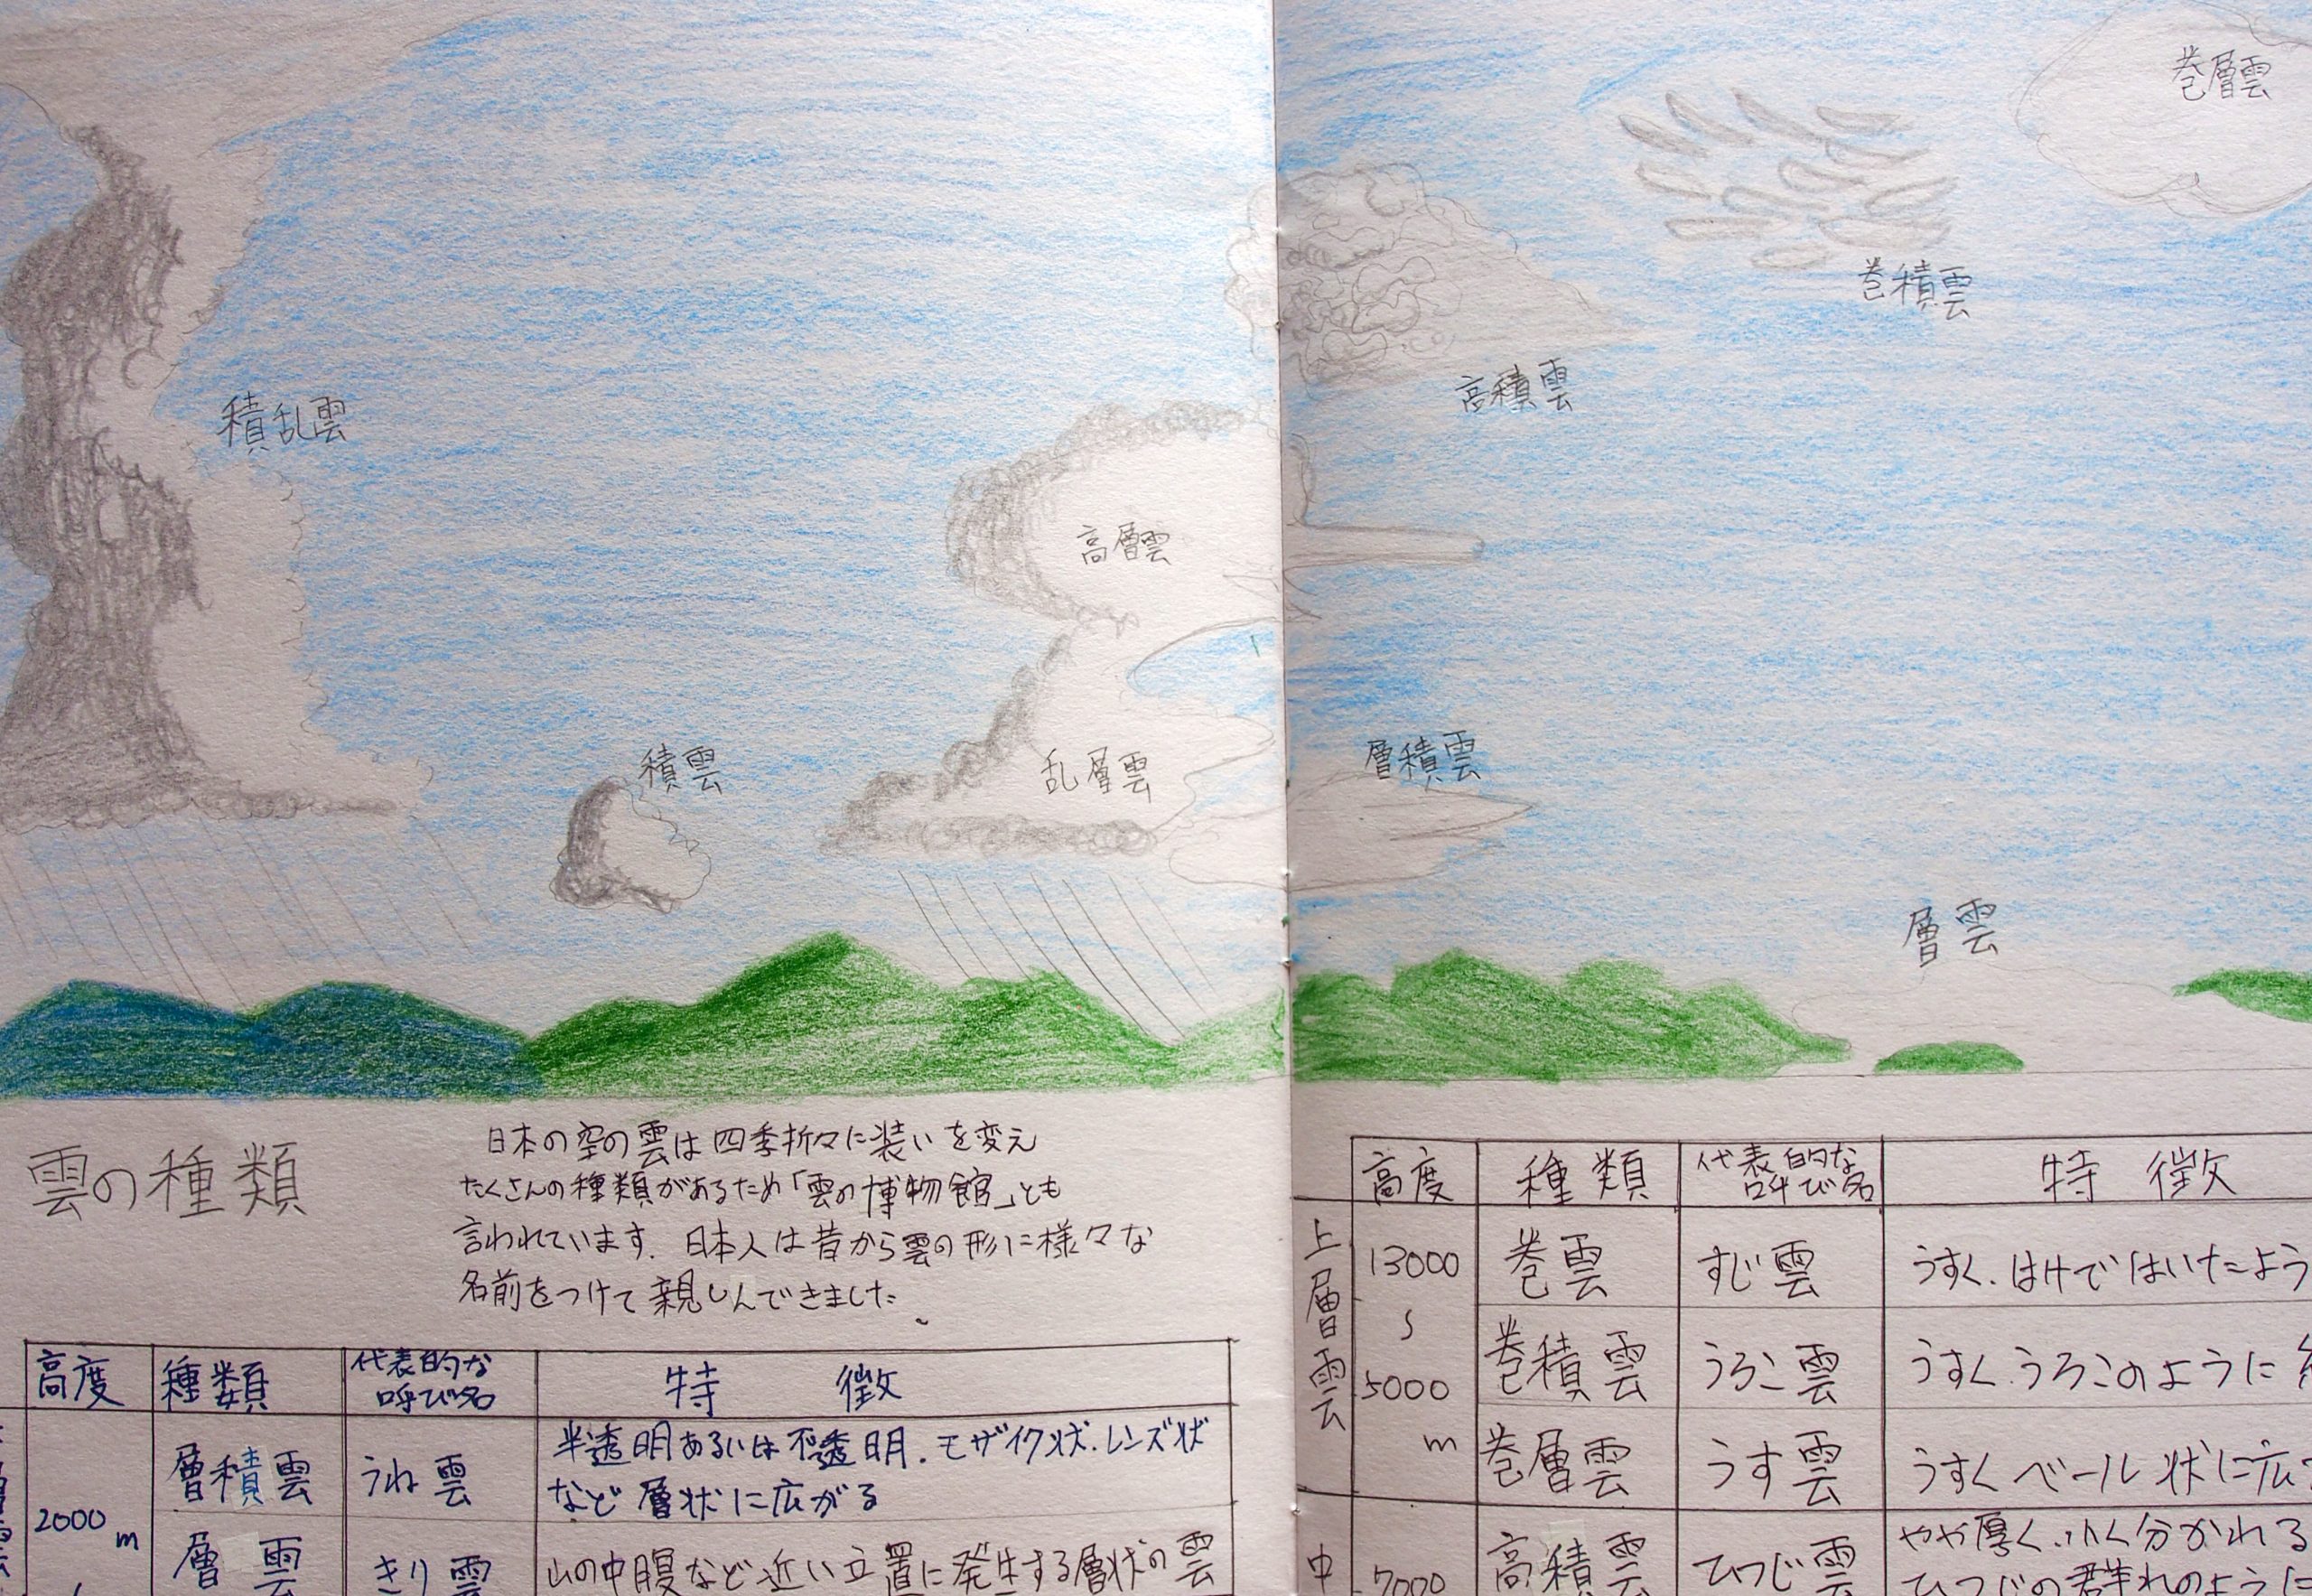 積乱雲
積雲
高層雲
乱層雲
巻層雲
巻積雲
高積雲
層積雲
層雲
雲の種類
日本の空の雲は四季折々に装いを変え
たくさんの種類があるため「雲の博物館」とも
言われています. 日本人は昔から雲の形に様々な
名前をつけて親しんできました。
高度 種類 代表的な呼び名 特徴
2000m
層積雲 うね雲 半透明あるいは不透明.モザイク状.レンズ状
など層状に広がる
層雲 きり雲 山の中腹など近い位置に発生する層状の雲
高度 種類 代表的な呼び名 特徴
上層雲 13000〜5000m
巻雲 すじ雲 うすく.はけではいたよう
巻積雲 うろこ雲 うすく.うろこのように
巻層雲 うす雲 うすくベール状に広
中 7000
高積雲 ひつじ雲 やや厚く.小く分かれる
ひつじの群れのように